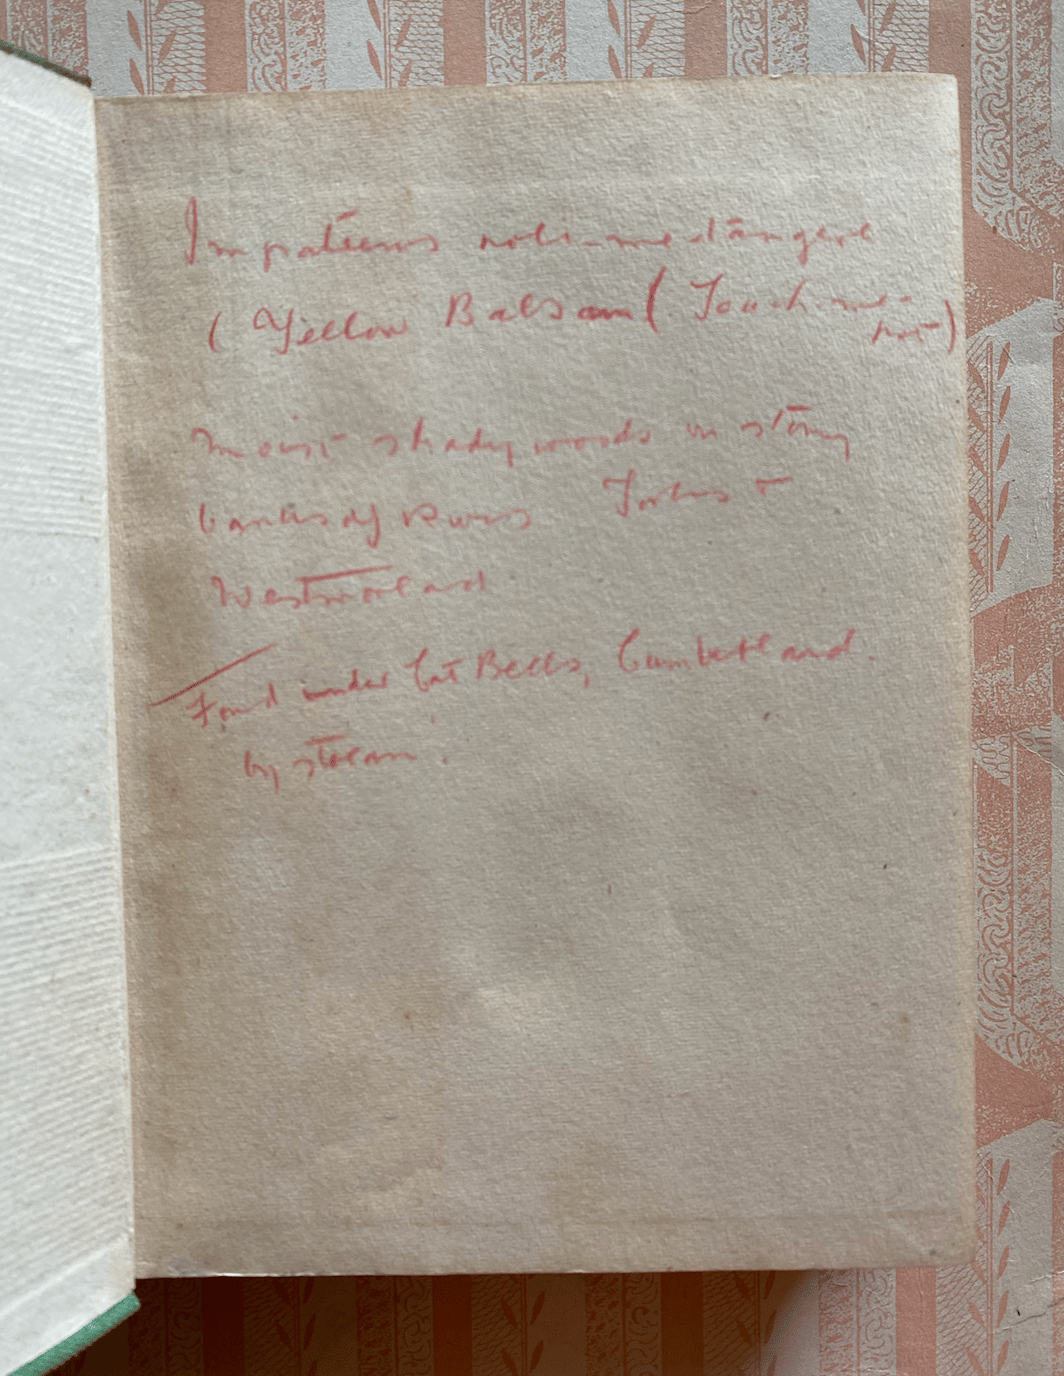 Impatiens noli-me-tangere
(Yellow Balsam (Touch-me-
not)
moist shady woods on stony
banks of rivers
Westmorland
Found under Cat Bells, Cumberland.
by stream.